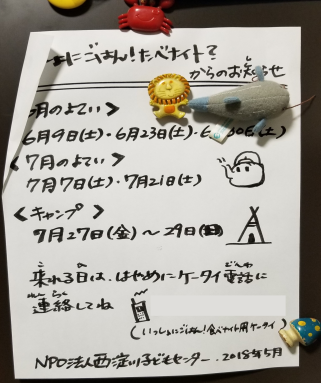 にごはん!たべナイト?
からのお知らせ
月のよてい>
6月9日(土)・6月23日(土)・6 30日(土)
<7月のよてい>
7月7日(土)・7月21日(土)
<キャンプ>
7月27日(金)〜29日(日)
来れる日は、はやめにケータイ電話に
連絡してね
(いっしょにごはん!食べナイト用ケータイ)
NPO法人西淀川子どもセンター・2018年5月